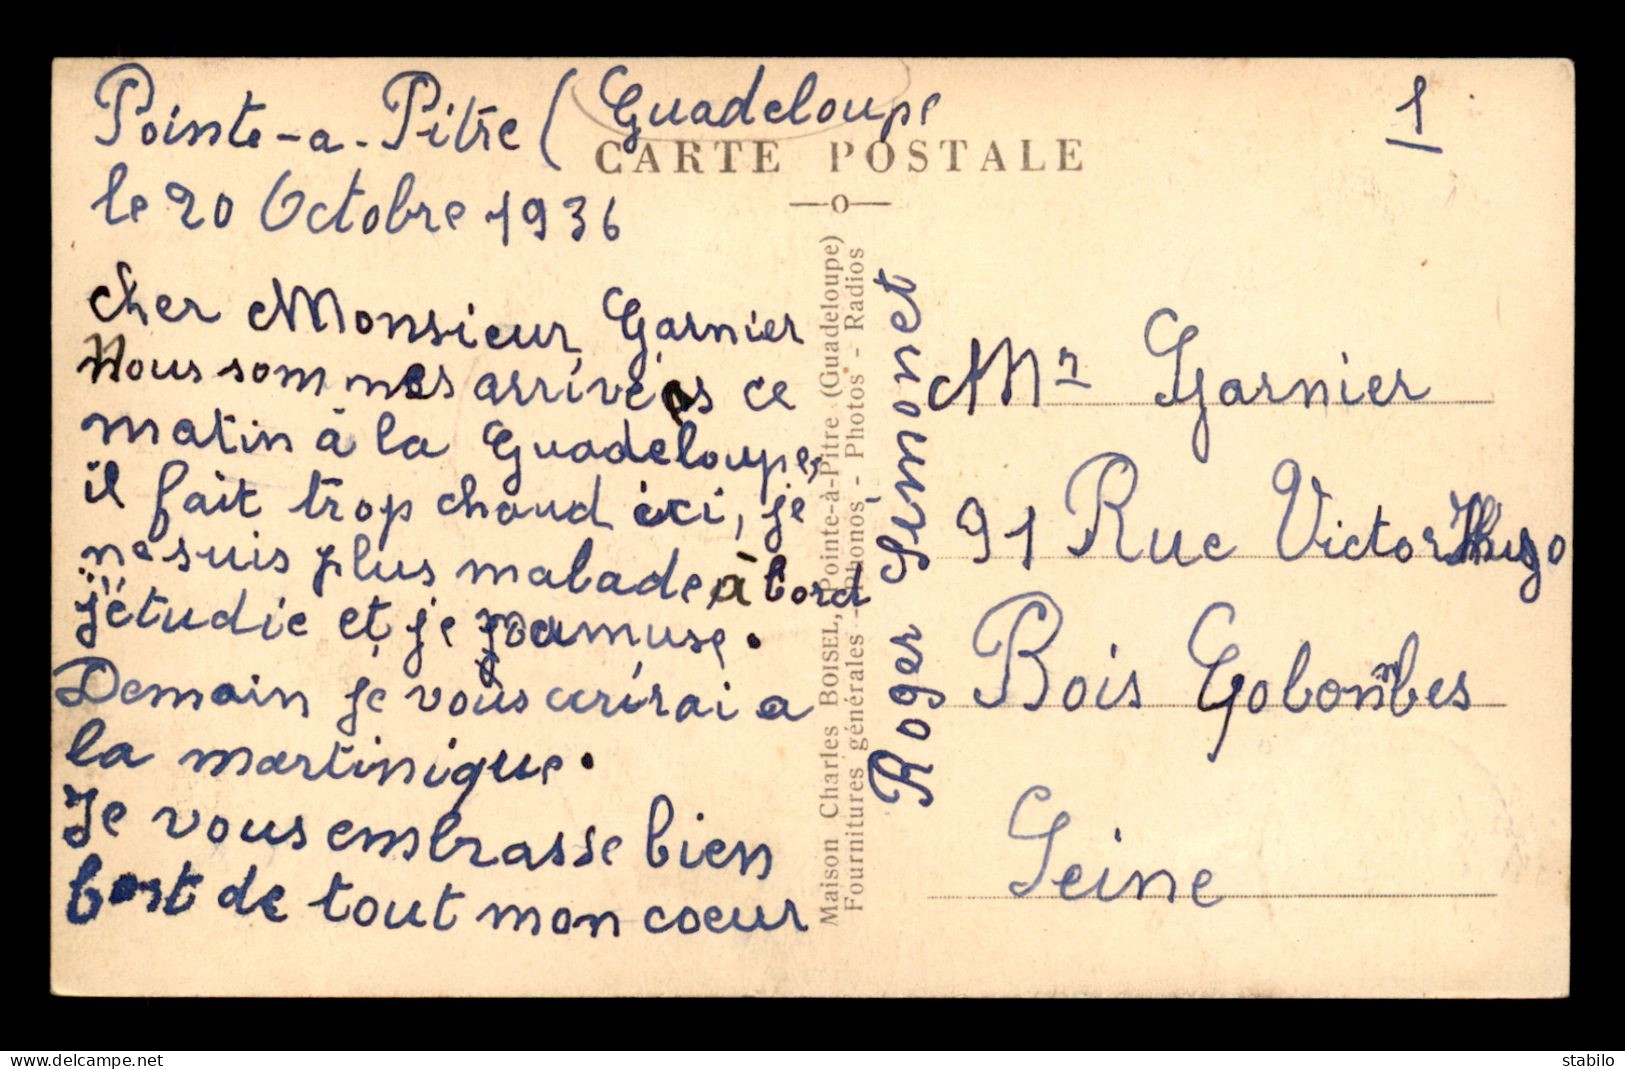 Pointe-a-Pitre (Guadeloupe
le 20 Octobre 1936
Cher Monsieur Garnier
Nous sommes arrivés ce
matin à la Guadeloupe,
il fait trop chaud ici, je
ne suis plus malade, à bord
j'étudie et je m'amuse.
Demain je vous ecrirai a
la martinique.
Je vous embrasse bien
fort de tout mon coeur
Roger Simonet
CARTE POSTALE
Maison Charles BOISEL, Pointe-à-Pitre (Guadeloupe)
Fournitures générales - Phonos - Photos - Radios
1
Mr Garnier
91 Rue Victor Hugo
Bois Colombes
Seine
delcampe.net
stabilo